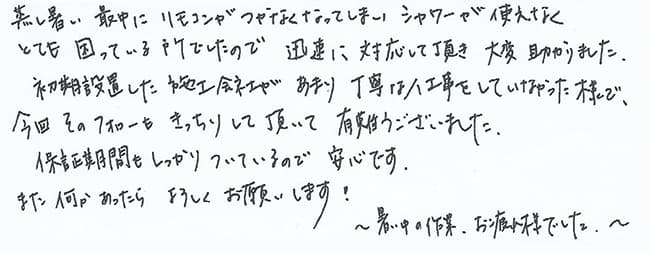 蒸し暑い最中にリモコンがつかなくなってしまいシャワーが使えなく
とても困っている所でしたので迅速に対応して頂き大変助かりました。
初期設置した施工会社があまり丁寧な工事をしていなかった様で、
今回そのフォローもきっちりして頂いて有難うございました。
保証期間もしっかりついているので安心です。
また何かあったらよろしくお願いします!
～暑い中の作業、お疲れ様でした。～